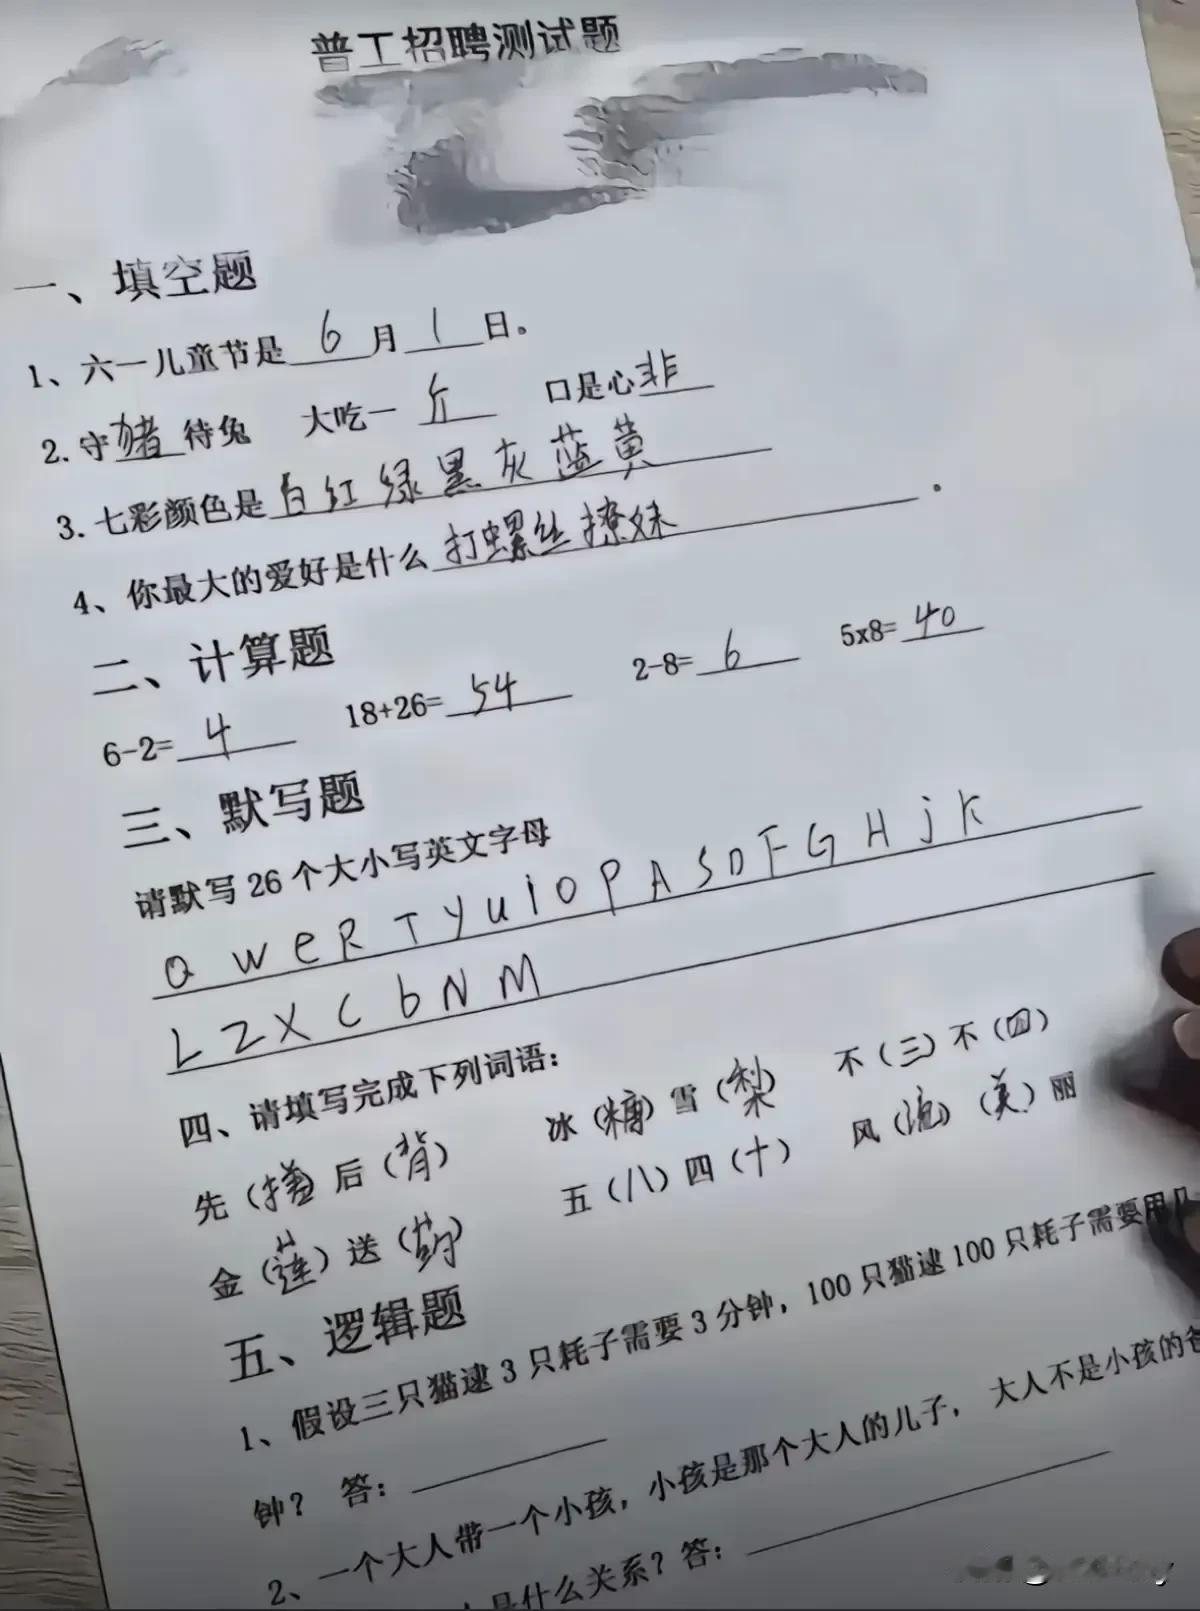 普工招聘测试题
一、填空题
1、六一儿童节是 6 月 1 日。
2.守猪待兔 大吃一斤 口是心非
3.七彩颜色是白红绿黑灰蓝黄
4、你最大的爱好是什么打螺丝撩妹。
二、计算题
6-2=4 18+26=54 2-8=6 5x8=40
三、默写题
请默写26个大小写英文字母
Q W e R T y u i O P A S D F G H j K
L Z X C b N M
四、请填写完成下列词语:
先()后(背) 冰(糖)雪(梨) 不(三)不(四)
金(莲)送(药) 五(八)四(十) 风(流)(美)丽
五、逻辑题
1、假设三只猫逮3只耗子需要3分钟，100只猫逮100只耗子需要用几
钟？ 答:
2、一个大人带一个小孩，小孩是那个大人的儿子，大人不是小孩的爸
是什么关系？答: